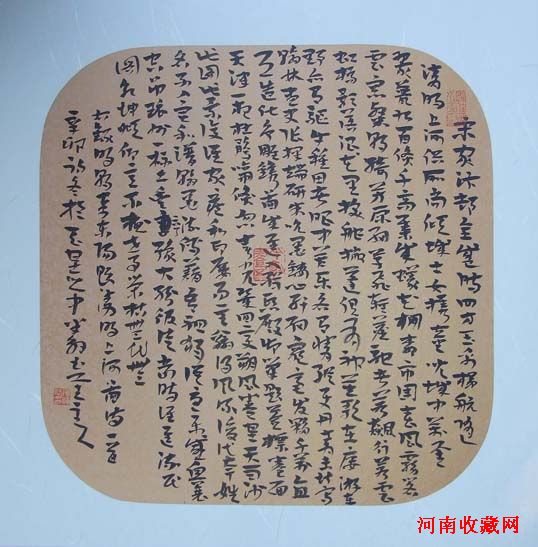 宋家汴都全盛时四方玉帛梯航随
清明上河俗所尚倾城士女携童儿城中万屋
翚甍起百货千商集成蚁花棚柳市围春风雾阁
云窗粲朝绮芳原细草飞轻尘驰者若飙行若云
虹桥影落浪花里捩舵撇篷俱有神笙歌在楼游在
野亦有驱牛种田者眼中苦乐各有情纵使丹青未堪写
翰林画史张择端研朱吮墨镂心肝细穷毫发夥千万直
与造化争雕镌图成进入缉熙殿御笔题签标卷面
天津一夜杜鹃啼倏忽春光几回变朔风卷地天雨沙
此图此景复谁家家藏私印屡易主赢得风流后代夸姓
名不入宣和谱翰墨流传藉吾祖独从忧乐感兴衰
空吊环州一抔土丰亨豫大纷彼徒当时谁进流民
图乾坤俯仰意不极世事荣枯
右录明朝李东阳题清明上河图诗一首
辛卯初冬於
河南收藏网